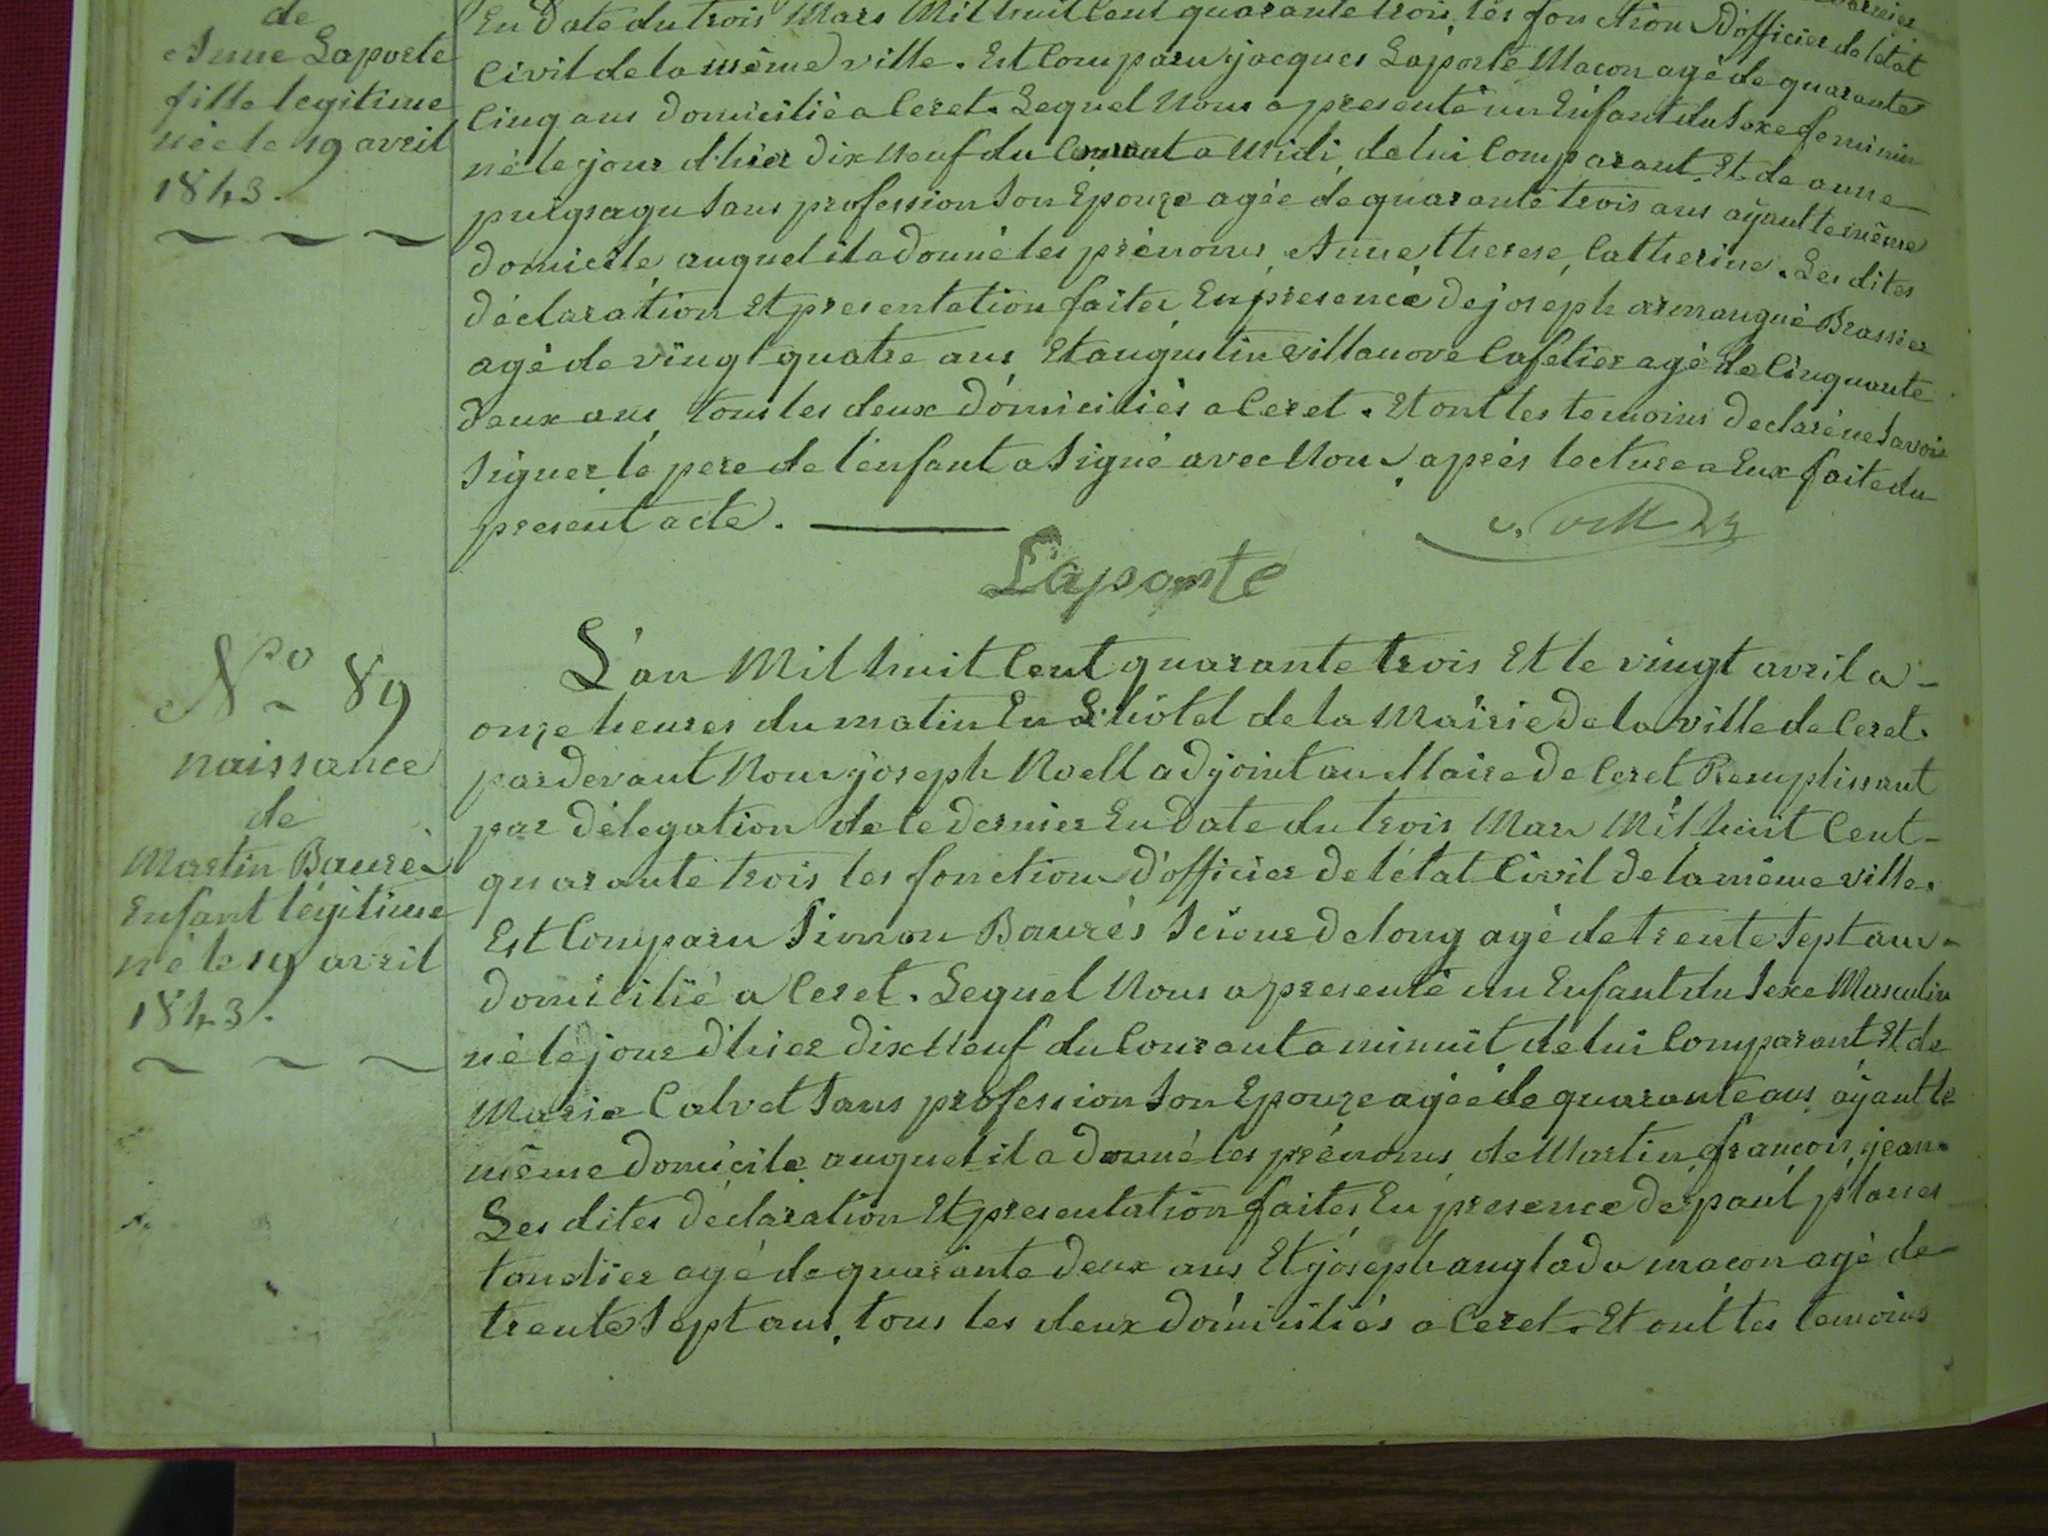 de
Anne Laporte
fille legitime
née le 19 avril
1843.
En date du trois Mars Mil huit Cent quarante trois, les fonction D'officier de l'état
Civil de la même ville. Est Comparu jacques Laporte Macon agé de quarante
Cinq ans domicilié a Ceret. Lequel Nous a presenté un Enfant du Sexe feminin
né le jour d'hier dix Neuf du Courant a Midi de lui Comparant Et de anne
puigsagu Sans profession Son Epouze agée de quarante trois ans ayant le même
domicile auquel il a donné les prénoms, Anne therese, Catherine. Les dites
déclaration Et presentation faites En presence de joseph armangué Brassier
agé de vingt quatre ans Et augustin villanove Cafetier agé de Cinquante
deux ans, tous les deux domiciliés a Ceret. Et ont les temoins declaré ne Savoir
Signer le pere de l'enfant a Signé avec Nous, aprés lecture a Eux faite du
present acte.
Laporte
No 89
naissance
de
Martin Baurés
Enfant légitime
né le 19 avril
1843.
L'an Mil huit Cent quarante trois Et le vingt avril a
onze heures du matin En L'hôtel de la Mairie De la ville de Ceret.
pardevant Nous joseph Noell adjoint au Maire De Ceret Remplissant
par délegation de le dernier En Date du trois Mars Mil huit Cent
quarante trois les fonction D'officier De l'état Civil De la même ville.
Est Comparu Simon Baurés Scieur De long agé de trente Sept ans
domicilié a Ceret. Lequel Nous a presenté un Enfant du Sexe Masculin
né le jour d'hier dix Neuf du Courant a minuit de lui Comparant Et de
Marie Calvet Sans profession Son Epouze agée de quarante ans ayant le
même domicile auquel il a donné les prénoms de Martin, françois, jean.
Les dites déclaration Et presentation faites En presence de paul planes
agé de quarante deux ans Et joseph anglada macon agé de
trente Sept ans, tous les deux domiciliés a Ceret. Et ont les temoins